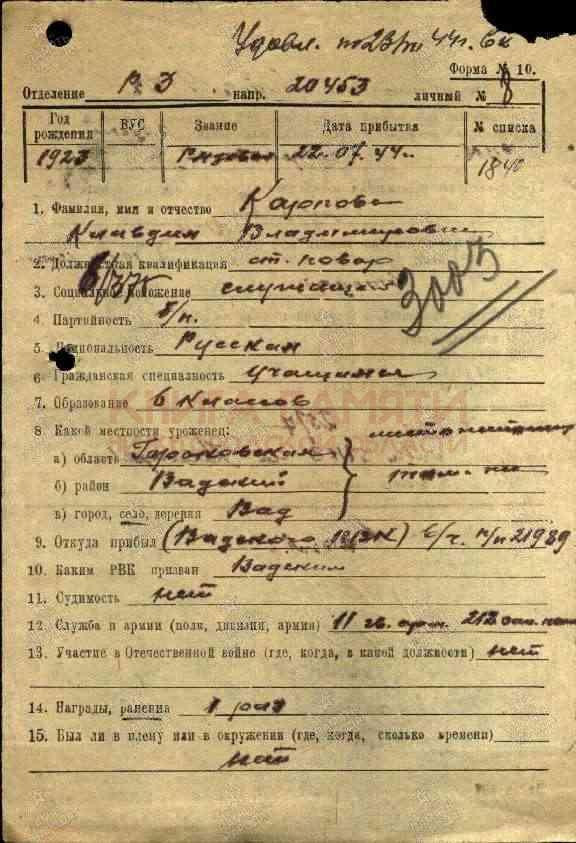 Удовл.
Форма № 10.
Отделение Р Э напр. 20453 личный № 8
Год рождения ВУС Звание Дата прибытия № списка
1923 Рядовая 22.07.44г. 1840
1. Фамилия, имя и отчество Карпова
Клавдия Владимировна
2. Должностная квалификация ст. повар
3. Социальное положение служащая
3003
4. Партийность б/п.
5. Национальность Русская
6 Гражданская специальность Учащаяся
7. Образование 6 классов
КНИГА ПАМЯТИ
8. Какой местности уроженец:
а) область Горьковская
б) район Вадский
в) город, село, деревня Вад
9. Откуда прибыл (Вадского РВК) в/ч. п/п 21989
10. Каким РВК призван Вадским
11. Судимость нет
12. Служба в армии (полк, дивизия, армия) 11 гв. арм. 212
13. Участие в Отечественной войне (где, когда, в какой должности) нет
14. Награды, ранения 1 раз
15. Был ли в плену или в окружении (где, когда, сколько времени)
нет